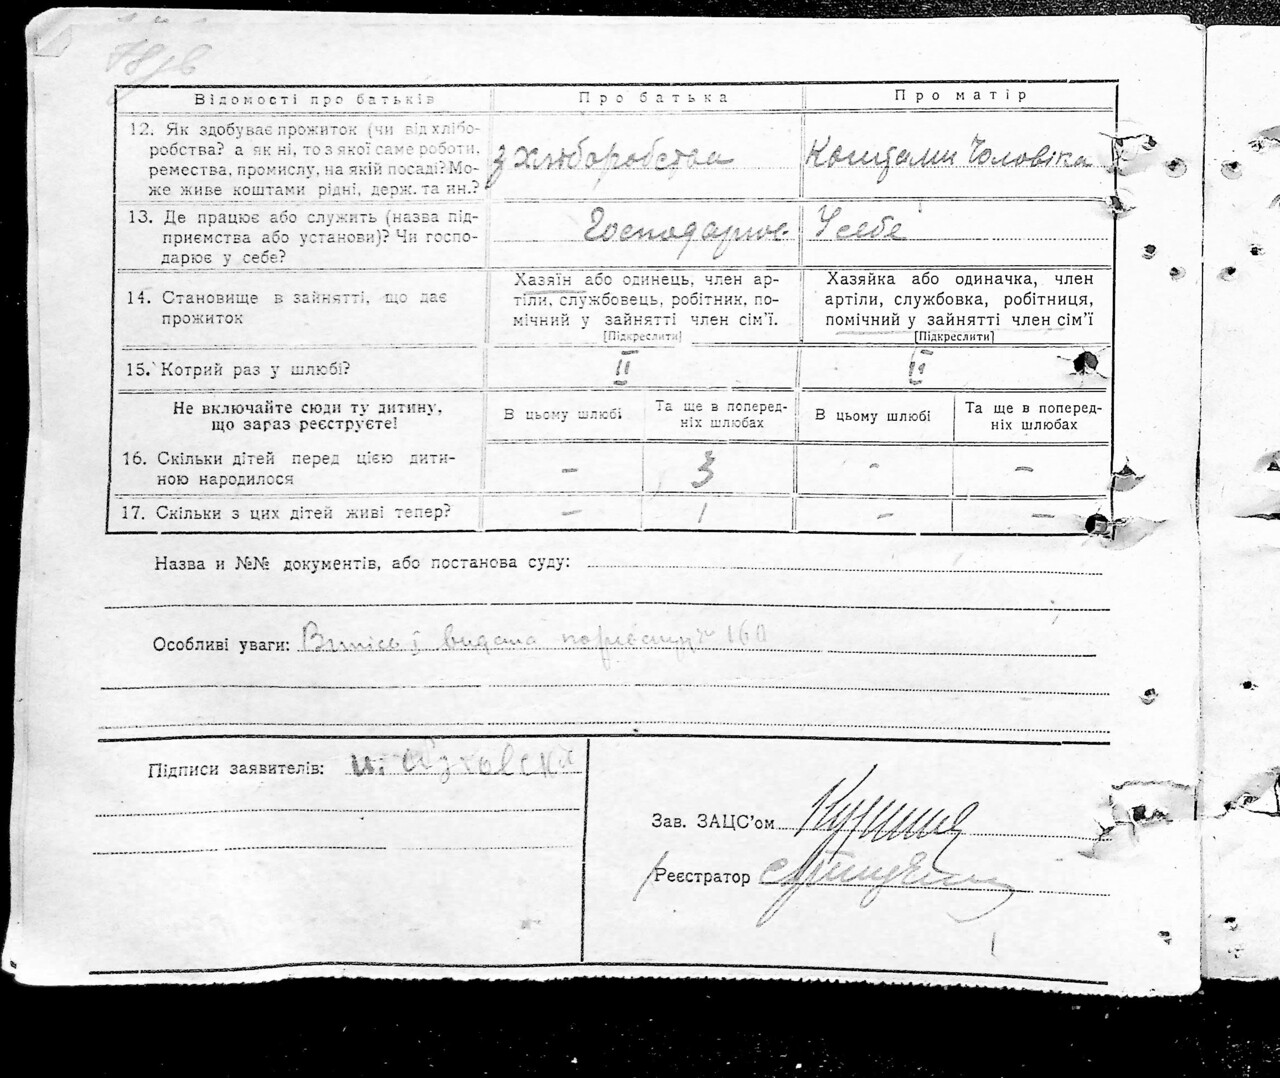 Відомості про батьків Про батька Про матір
12. Як здобуває прожиток (чи від хлібо-
робства? а як ні, то з якої саме роботи,
ремества, промислу, на якій посаді? Мо-
же живе коштами рідні, держ. та ин.?
з хліборобства
Коштами чоловіка
13. Де працює або служить (назва під-
приємства або установи)? Чи госпо-
дарює у себе?
Господарює
У себе
14. Становище в зайнятті, що дає
прожиток
Хазяїн або одинець, член ар-
тіли, службовець, робітник, по-
мічний у зайнятті член сім'ї.
[Підкреслити]
Хазяйка або одиначка, член
артіли, службовка, робітниця,
помічний у зайнятті член сім'ї
[Підкреслити]
15. Котрий раз у шлюбі? II II
Не включайте сюди ту дитину,
що зараз реєструєте!
В цьому шлюбі
Та ще в поперед-
ніх шлюбах
В цьому шлюбі
Та ще в поперед-
ніх шлюбах
16. Скільки дітей перед цією дити-
ною народилося
– 3 – –
17. Скільки з цих дітей живі тепер? – 1 – –
Назва и №№ документів, або постанова суду:
Особливі уваги: видана 160
Підписи заявителів:
Зав. ЗАЦС'ом
Реєстратор